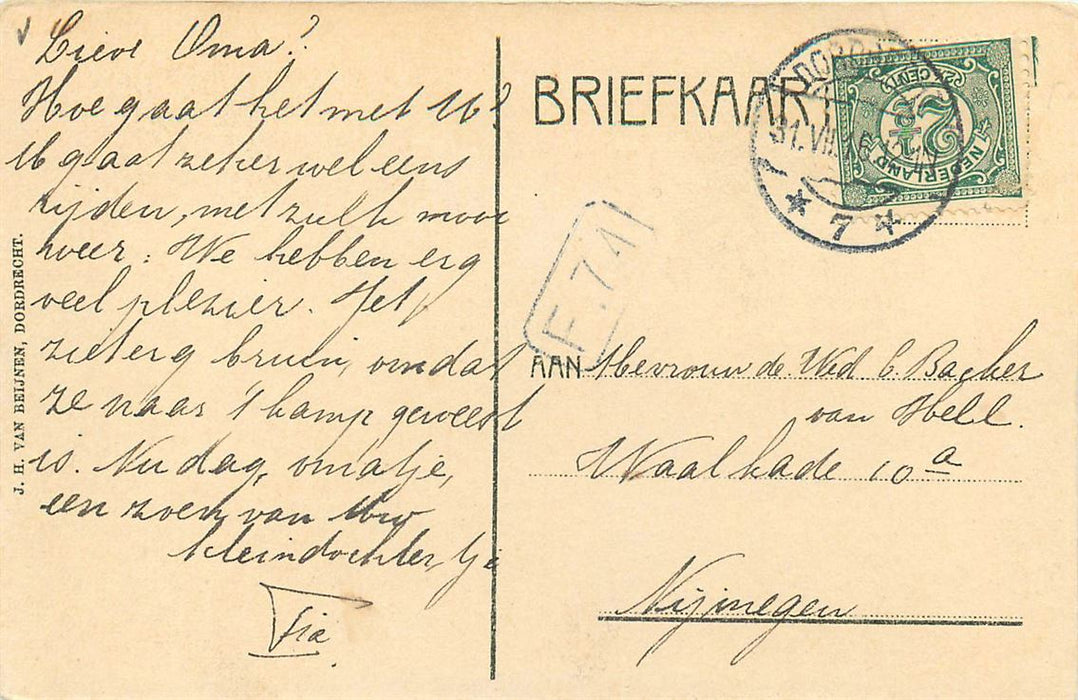 Lieve Oma!
Hoe gaat het met U?
U gaat zeker wel eens
rijden, met zulk mooi
weer. We hebben erg
veel plezier. Jet
ziet erg bruin, omdat
ze naar 't kamp geweest
is. Nu dag, omatje,
een zoen van Uw
kleindochtertje
Fia
J. H. VAN BEIJNEN, DORDRECHT.
BRIEFKAAR
DORDR
31.VII.16 12-1N
7
NEDERLAND
2½ CENT
2½
F.71
AAN Mevrouw de Wed C. Backer
van Hell.
Waalkade 10a
Nijmegen